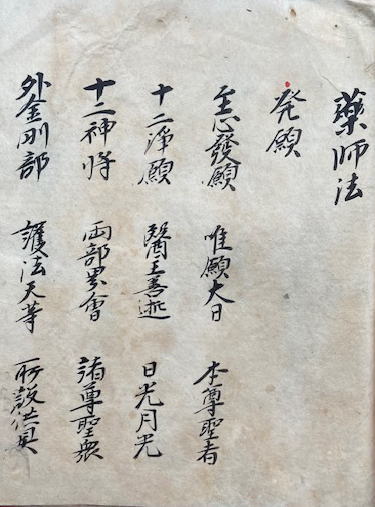 薬師法
発願
至心發願 唯願大日 本尊聖者
十二淨願 醫王善逝 日光月光
十二神将 両部界會 諸尊聖衆
外金剛部 護法天等 所設供具